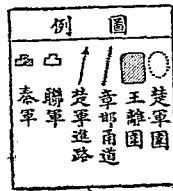 圖例
楚軍圍
王離圍
章邯甬道
楚軍進路
聯軍
秦軍